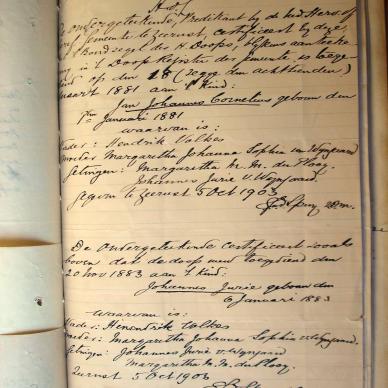 De ondergeteekende, Predikant bij de Ned. Herv. of
Gemeente te Zeerust, certificeert bij deze,
dat Bondzegel des H. Doops, blijkens aanteeke
in 't Doop Register der gemeente is toege
op den 18 (zegge den achttienden)
Maart 1881 aan 't kind:
Jan Johannes Cornelius geboren den
Januari 1881
waarvan is:
Vader: Hendrik Volkes
Moeder: Margaretha Johanna Sophia van Wijngaard
Getuigen: Margaretha M. M. du Plooy
Johannes Jurie v. Wijngaard
Gegeven te Zeerust 5 Oct 1903
De Ondergeteekende certificeert zooals
boven dat de doop werd toegediend den
20 Nov 1883 aan 't kind:
Johannes Jurie geboren den
6 Januari 1883
waarvan is:
Vader: Henendrik Volkes
Moeder: Margaretha Johanna Sophia v. Wijngaard
Getuigen: Johannes Jurie v. Wijngaard
Margaretha M. M. du Plooy
Zeerust 5 Oct 1903